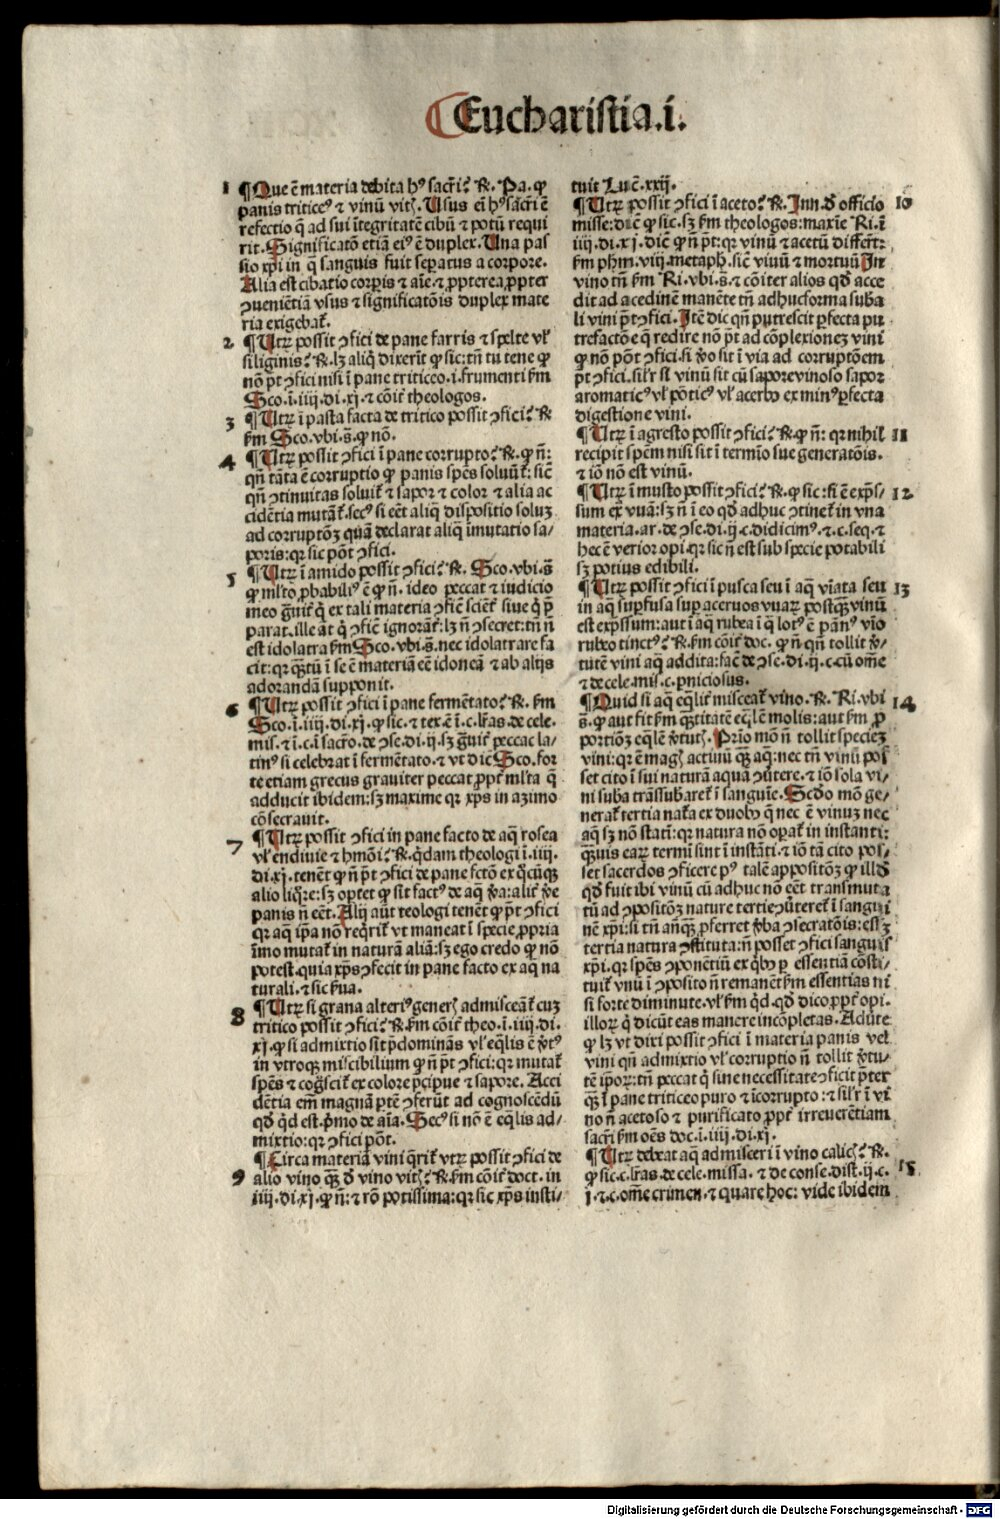 Eucharistia.i.
1 ¶Que ē materia debita hꝰ sacr̄i? ℞. Pa. ꝙ
panis triticeꝰ ⁊ vinū vitꝭ. Usus em̄ hꝰ sacr̄i ē
refectio q̄ ad sui ītegritatē cibū ⁊ potū requi
rit. Significatō etiā eiꝰ ē duplex. Una pas
sio xp̄i in q̄ sanguis fuit seꝑatus a corpore.
Alia est cibatio corꝑis ⁊ aīe: ⁊ ꝓpterea ꝓpter
ꝯueniētiā vsus ⁊ significatōis duplex mate
ria exigebat̄.
2. ¶Utrꝝ possit ꝯfici de pane farris ⁊ spelte vl̓
siliginis? ℞. lꝫ aliq̄ dixerīt ꝙ sic: tn̄ tu tene ꝙ
nō p̄t ꝯfici nisi ī pane triticeo .i. frumenti ẜm
Sco. ī. iiii. di. xj. ⁊ cōit̄ theologos.
3 ¶Utrꝝ ī pasta facta de tritico possit ꝯfici? ℞
ẜm Sco. vbi. s̄. ꝙ nō.
4 ¶Utrꝝ possit ꝯfici ī pane corrupto? ℞. ꝙ n̄:
qn̄ tāta ē corruptio ꝙ panis spēs soluūt̄: sic̄
qn̄ ꝯtinuitas soluit̄ ⁊ sapor ⁊ color ⁊ alia ac
cidētia mutāt̄. secꝰ si eēt aliq̄ dispositio soluꝫ
ad corruptōꝫ quā declarat aliq̄ īmutatio sa-
poris: qꝛ sic pōt ꝯfici.
5 ¶Utrꝝ ī amido possit ꝯfici? ℞. Sco. vbi. s̄
ꝙ ml̓to ꝓbabiliꝰ ē ꝙ n̄. ideo peccat ⁊ iudicio
meo gͣuit̄ q̄ ex tali materia ꝯfic̄ scient̄ siue q̄ p̄
parat. ille āt q̄ ꝯfic̄ ignorāt̄: lꝫ n̄ ꝯsecret: tn̄ n̄
est idolatra ẜm Sco. vbi. s̄. nec idolatrare fa
cit: qꝛ qͣꝫtū ī se ē materiā eē idoneā ⁊ ab alijs
adorandā supponit.
6 ¶Utrꝝ possit ꝯfici ī pane fermētato? ℞. ẜm
Sco. ī. iiij. di. xj. ꝙ sic. ⁊ tex. ē ī. c. lr̄as. de cele.
mis. ⁊ ī. c. ī sacr̄o. de ꝯse. di. ij. sꝫ gͣuit̄ peccac la-
tinꝰ si celebrat ī fermētato. ⁊ vt dic̄ Sco. for
te etiam grecus grauiter peccat ꝓpt̄ ml̓ta q̄
adducit ibidem: sꝫ maxime qꝛ xp̄s in azimo
cōsecrauit.
7 ¶Utrꝝ possit ꝯfici in pane facto de aq̄ rosea
vl̓ endiuie ⁊ hmōi? ℞. q̄dam theologi ī. iiij.
di. xj. tenēt ꝙ n̄ p̄t ꝯfici de pane fctō ex q̄cūqꝫ
alio liq̄re: sꝫ oꝑtet ꝙ sit factꝰ de aq̄ v̄a: alit̄ v̄e
panis n̄ eēt. Alij aūt teologi tenēt ꝙ p̄t ꝯfici
qꝛ aq̄ ip̄a nō req̄rit̄ vt maneat ī specie ꝓpria
īmo mutat̄ in naturā aliā: sꝫ ego credo ꝙ nō
potest. quia xp̄s ꝯfecit in pane facto ex aq̄ na
turali. ⁊ sic ẜua.
8 ¶Utrꝝ si grana alteriꝰ generꝭ admisceāt̄ cuꝫ
tritico possit ꝯfici? ℞. ẜm cōit̄ theo. ī. iiij. di.
xj. ꝙ si admixtio sit p̄dominās vl̓ eq̄lis ē v̄tꝰ
in vtroqꝫ miscibilium ꝙ n̄ p̄t ꝯfici: qꝛ mutat̄
spēs ⁊ cogͦscit̄ ex colore p̄cipue ⁊ sapore. Acci
dētia em̄ magnā ꝑtē ꝯferūt ad cognoscēdū
qd̓ qd̓ est. p̄mo de aīa. Secꝰ si nō ē eq̄lis ad-
mixtio: qꝛ ꝯfici pōt.
9 ¶Circa materiā vini q̄rit̄ vtrꝝ possit ꝯfici de
alio vino qͣꝫ d̓ vino vitꝭ? ℞. ẜm cōit̄ doct. in
iiij. di. xj. ꝙ n̄: ⁊ rō potissima: qꝛ sic xp̄s insti-
tuit Luc̄. xxij.
¶Utrꝝ possit ꝯfici ī aceto? ℞. Inn. d̓ officio 10
misse: dic̄ ꝙ sic. sꝫ ẜm theologos: maxīe Ri. ī
iiij. di. xj. dic̄ ꝙ n̄ p̄t: qꝛ vinū ⁊ acetū differt̄:
ẜm phm̄. viij. metaph. sic̄ viuū ⁊ mortuū In
vino tn̄ ẜm Ri. vbi. s̄. ⁊ cōiter alios qd̓ acce
dit ad acedinē manēte tn̄ adhuc forma suba
li vini p̄t ꝯfici. Itē dic qn̄ putrescit ꝑfecta pu
trefactōe q̄ redire nō p̄t ad cōplexionez vini
ꝙ nō pōt ꝯfici. si v̄o sit ī via ad corruptōem
p̄t ꝯfici. sil̓r si vinū sit cū sapore vinoso sapor
aromaticꝰ vl̓ pōticꝰ vl̓ acerbo ex minꝰ ꝑfecta
digestione vini.
¶Utrꝝ ī agresto possit ꝯfici? ℞. ꝙ n̄: qꝛ nihil 11
recipit spēm nisi sit ī termīo sue generatōis.
⁊ iō nō est vinū.
¶Utrꝝ ī musto possit ꝯfici? ℞. ꝙ sic: si ē exp̄s- 12.
sum ex vua: sꝫ n̄ ī eo qd̓ adhuc ꝯtinet̄ in vna
materia. ar. de ꝯse. di. ij. c. didicimꝰ. ⁊. c. seq. ⁊
hec ē verior opi. qꝛ sic n̄ est sub specie potabili
sꝫ potius edibili.
¶Utrꝝ possit ꝯfici ī pusca seu ī aq̄ vīata seu 13
in aq̄ suꝑfusa suꝑ aceruos vuaꝝ postqͣꝫ vinū
est exp̄ssum: aut ī aq̄ rubea ī q̄ lotꝰ ē pānꝰ vīo
rubeo tinctꝰ? ℞. ẜm cōit̄ doc. ꝙ n̄ qn̄ tollit v̄-
tutē vini aq̄ addita: fac̄ de ꝯse. di. ij. c. cū om̄e
⁊ de cele. mis. c. ꝑniciosus.
¶Quid si aq̄ eq̄lit̄ misceat̄ vino. ℞. Ri. vbi 14
s̄. ꝙ aut fit ẜm qͣꝫtitatē eq̄lē molis: aut ẜm ꝓ
portiōꝫ eq̄lē v̄tutꝭ. Prīo mō n̄ tollit speciez
vini: qꝛ ē magꝭ actiuū qͣꝫ aq̄: nec tn̄ vinū pos
set cito ī sui naturā aquā ꝯūtere. ⁊ iō sola vi-
ni suba trāssubaret̄ ī sanguīe. Scd̓o mō ge-
nerat̄ tertia nat̄a ex duobꝰ q̄ nec ē vinuꝫ nec
aq̄ sꝫ nō statī: qꝛ natura nō oꝑat̄ in instanti:
qͣꝫuis eaꝝ termī sint ī instāti. ⁊ iō tā cito pos-
set sacerdos ꝯficere pꝰ talē appositōꝫ ꝙ illd̓
qd̓ fuit ibi vinū cū adhuc nō eēt transmuta
tū ad ꝯpositōꝫ nature tertie ꝯūteret̄ ī sangui
nē xp̄i: si tn̄ an̄qͣꝫ ꝓferret v̄ba ꝯsecratōis: esꝫ
tertia natura ꝯstituta: n̄ posset ꝯfici sanguis
xp̄i. qꝛ spēs ꝯponētiū ex qͥbꝰ ꝑ essentiā cōsti-
tuit̄ vnū ī ꝯposito n̄ remanēt ẜm essentias ni
si forte diminute. vl̓ ẜm qd̓. qd̓ dico ꝓpt̄ opi.
illoꝝ q̄ dicūt eas manere incōpletas. Aduīte
ꝙ lꝫ vt dixi possit ꝯfici ī materia panis vel
vini qn̄ admixtio vl̓ corruptio n̄ tollit v̄tu-
tē ipoꝝ: tn̄ peccat q̄ sine necessitate ꝯficit p̄ter
qͣꝫ ī pane triticeo puro ⁊ īcorrupto: ⁊ sil̓r ī vi
no n̄ acetoso ⁊ purificato ꝓpt̄ irreuerētiam
sacr̄i ẜm oēs doc. ī. iiij. di. xj.
¶Utrꝝ debeat aq̄ admisceri ī vino calicꝭ? ℞. 15.
ꝙ sic. c. lr̄as. de cele. missa. ⁊ de conse. dist. ij. c.
j. ⁊. c. om̄e crimen. ⁊ quare hoc: vide ibidem
Digitalisierung gefördert durch die Deutsche Forschungsgemeinschaft - DFG